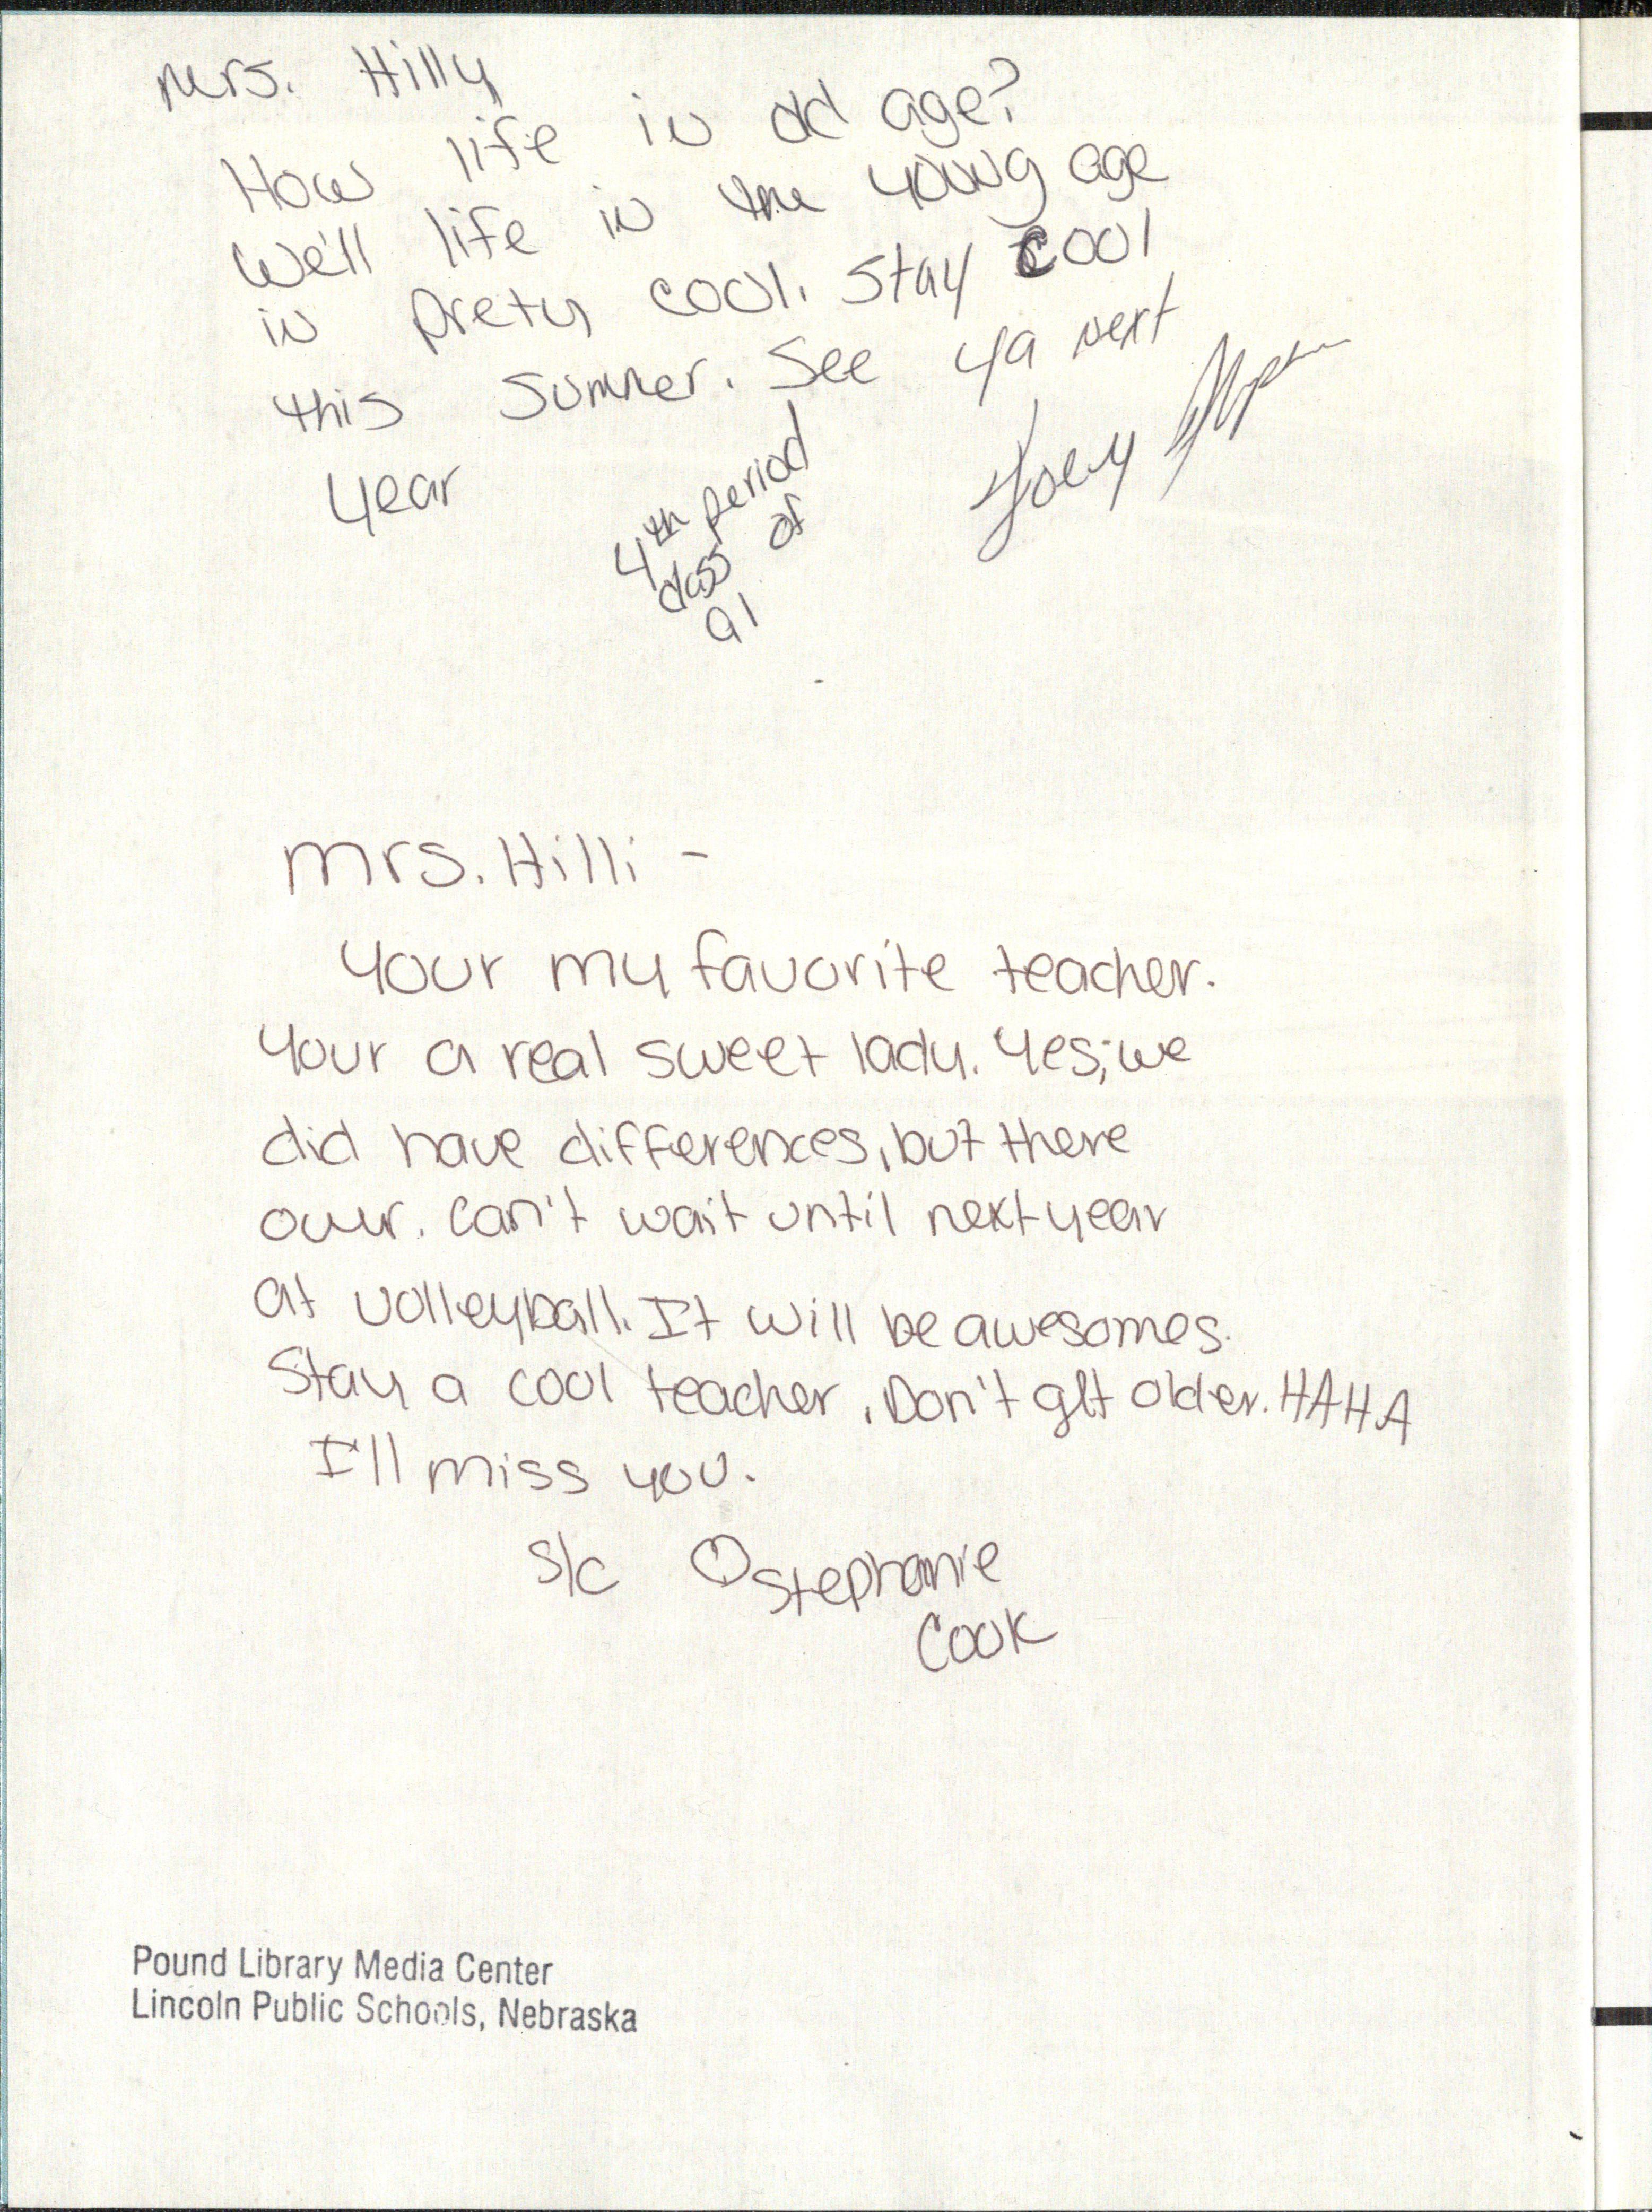 Mrs. Hilly
How life in old age?
We'll life in the young age
in prety cool. Stay cool
this summer. See ya next
year
4th period
class of
91
Joey
Mrs. Hilli -
Your my favorite teacher.
Your a real sweet lady. Yes; we
did have differences, but there
over. Can't wait until next year
at volleyball. It will be awesomes.
Stay a cool teacher. Don't get older. HAHA
I'll miss you.
s/c ♡ Stephanie
Cook
Pound Library Media Center
Lincoln Public Schools, Nebraska